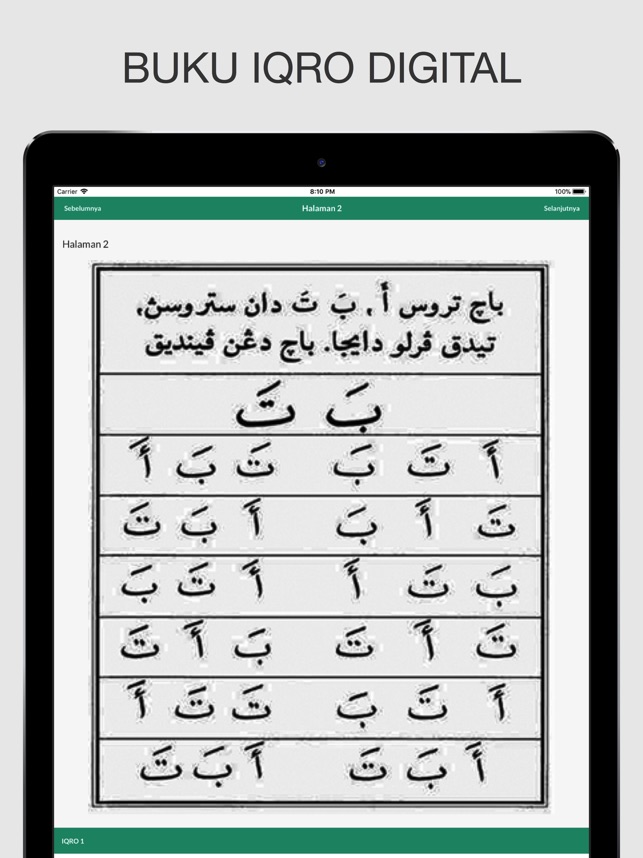 BUKU IQRO DIGITAL
Carrier 8:10 PM 100%
Sebelumnya Halaman 2 Selanjutnya
Halaman 2
باچ تروس أَ , بَ تَ دان ستروسڽ،
تيدق ڤرلو دايجا. باچ دڠن ڤينديق
بَ تَ
أَ تَ بَ تَ بَ أَ
تَ أَ بَ أَ بَ تَ
بَ تَ أَ أَ تَ بَ
تَ أَ تَ بَ أَ تَ
أَ تَ بَ تَ تَ أَ
أَ بَ تَ أَ بَ تَ
IQRO 1